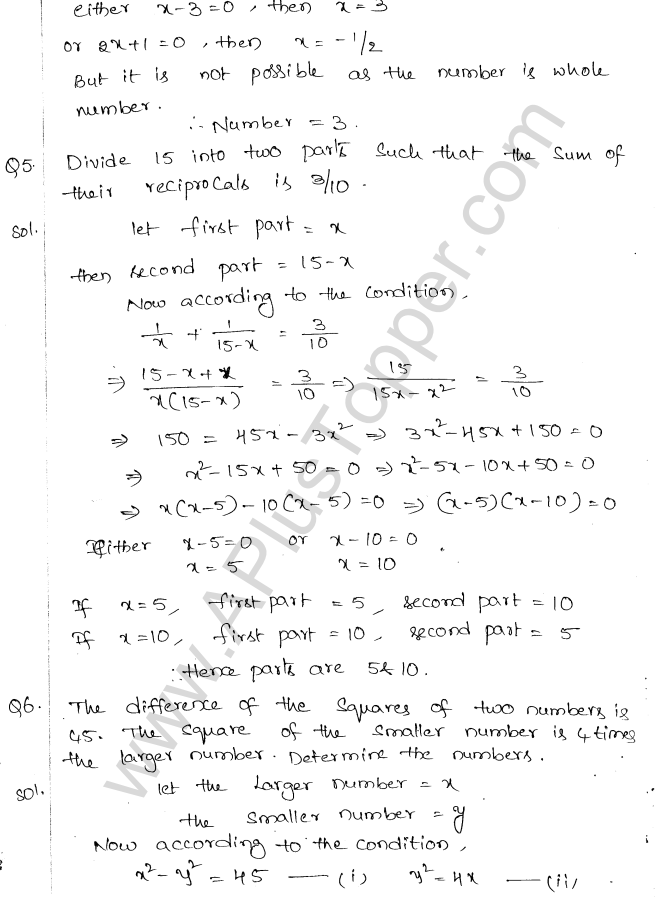 either x-3=0, then x=3
or 2x+1=0, then x=-1/2
But it is not possible as the number is whole
number.
∴ Number = 3.
Q5. Divide 15 into two parts such that the sum of
their reciprocals is 3/10.
Sol. let first part = x
then second part = 15-x
Now according to the condition,
1/x + 1/(15-x) = 3/10
⇒ (15-x+x)/(x(15-x)) = 3/10 ⇒ 15/(15x-x²) = 3/10
⇒ 150 = 45x-3x² ⇒ 3x²-45x+150=0
⇒ x²-15x+50=0 ⇒ x²-5x-10x+50=0
⇒ x(x-5)-10(x-5)=0 ⇒ (x-5)(x-10)=0
Either x-5=0 or x-10=0.
x=5 x=10
If x=5, first part = 5, second part = 10
If x=10, first part = 10, second part = 5
∴ Hence parts are 5&10.
Q6. The difference of the squares of two numbers is
45. The square of the smaller number is 4 times
the larger number. Determine the numbers.
Sol. let the larger number = x
the smaller number = y
Now according to the condition,
x²-y²=45 —(i) y²=4x —(ii)
www.APlusTopper.com